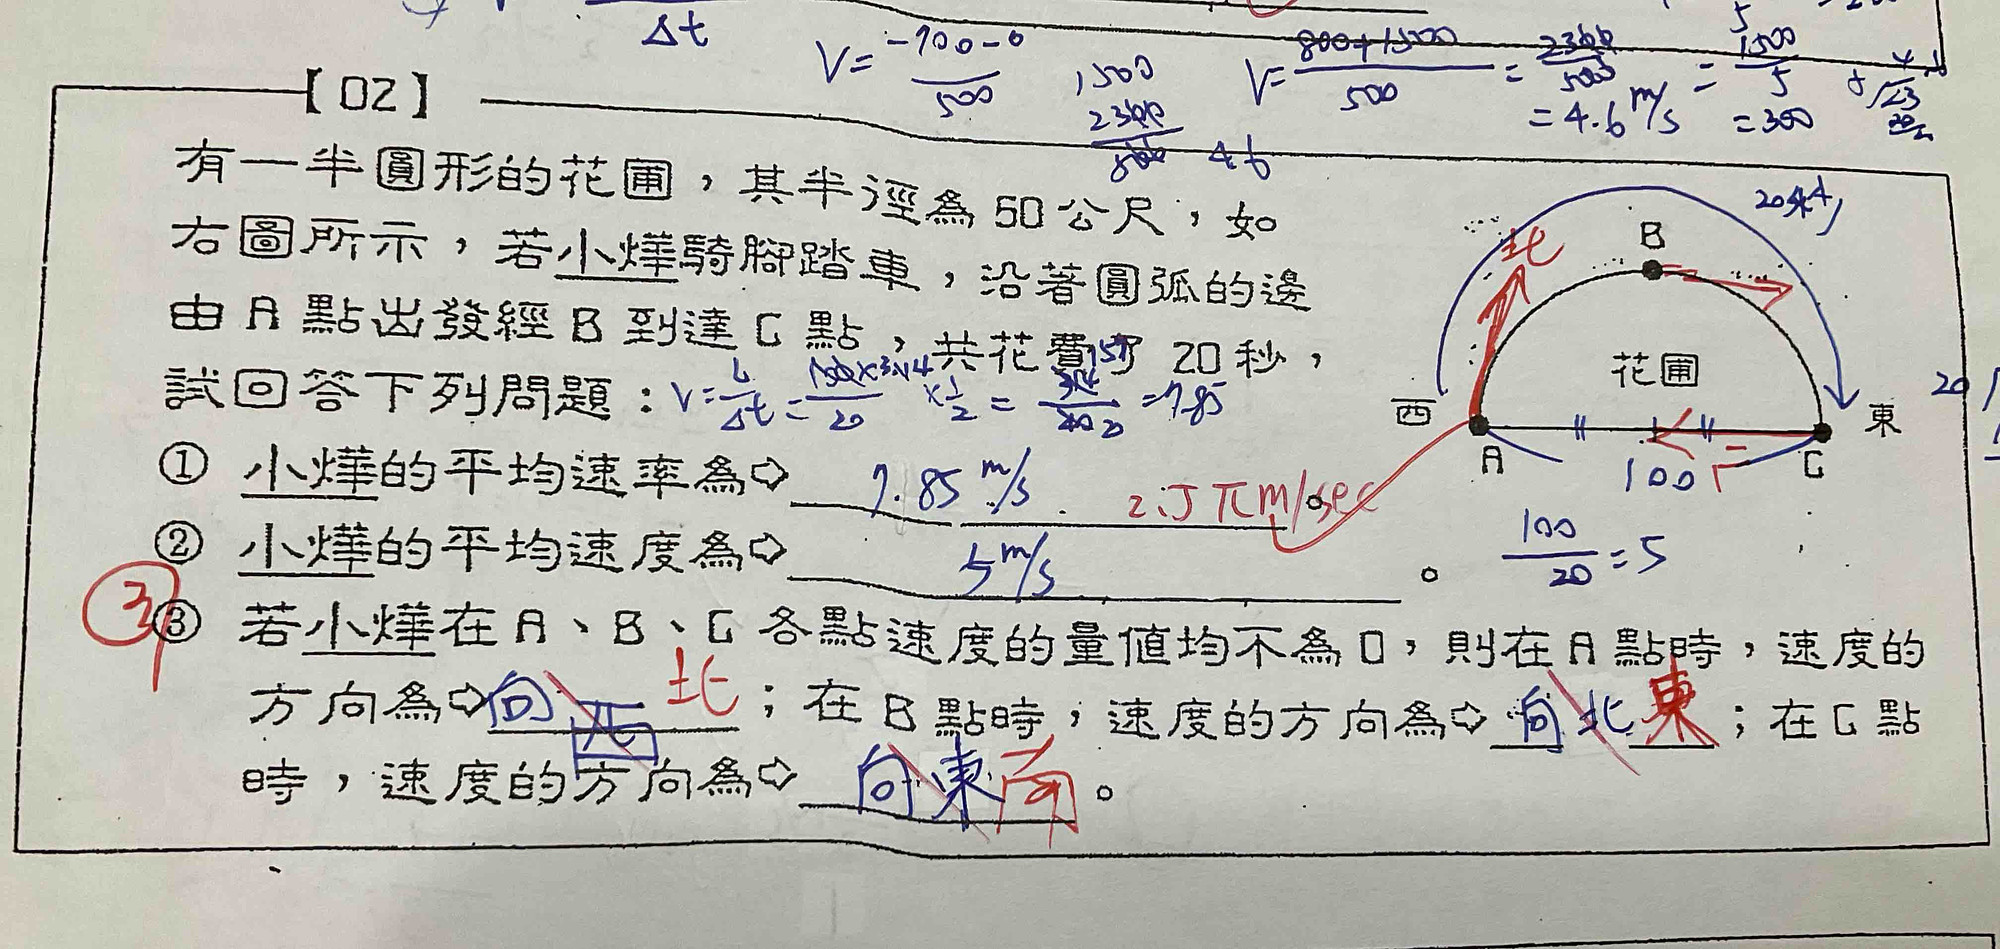 Δt
V= -700-0 / 500
1500
2300 / 500 4.6
V= 800+1500 / 500 = 2300 / 500 = 1500 / 5
= 4.6 m/s = 300
【02】
有一半圓形的花圃，其半徑為50公尺，如
右圖所示，若小燁騎腳踏車，沿著圓弧的邊
由A點出發經B到達C點，共花費了20秒，
試回答下列問題：
V= L/Δt = 100×3.14 / 20 ×1/2 = 157 314 / 40 20 = 7.85
① 小燁的平均速率為⇨ 7.85 m/s 2.5 π m/sec。
② 小燁的平均速度為⇨ 5 m/s 。
③
③ 若小燁在A、B、C各點速度的量值均不為0，則在A點時，速度的
方向為⇨向西 北；在B點時，速度的方向為⇨向北 東；在C點
時，速度的方向為⇨向東 南。
北
B
花圃
西
東
A
100
C
100 / 20 = 5
20